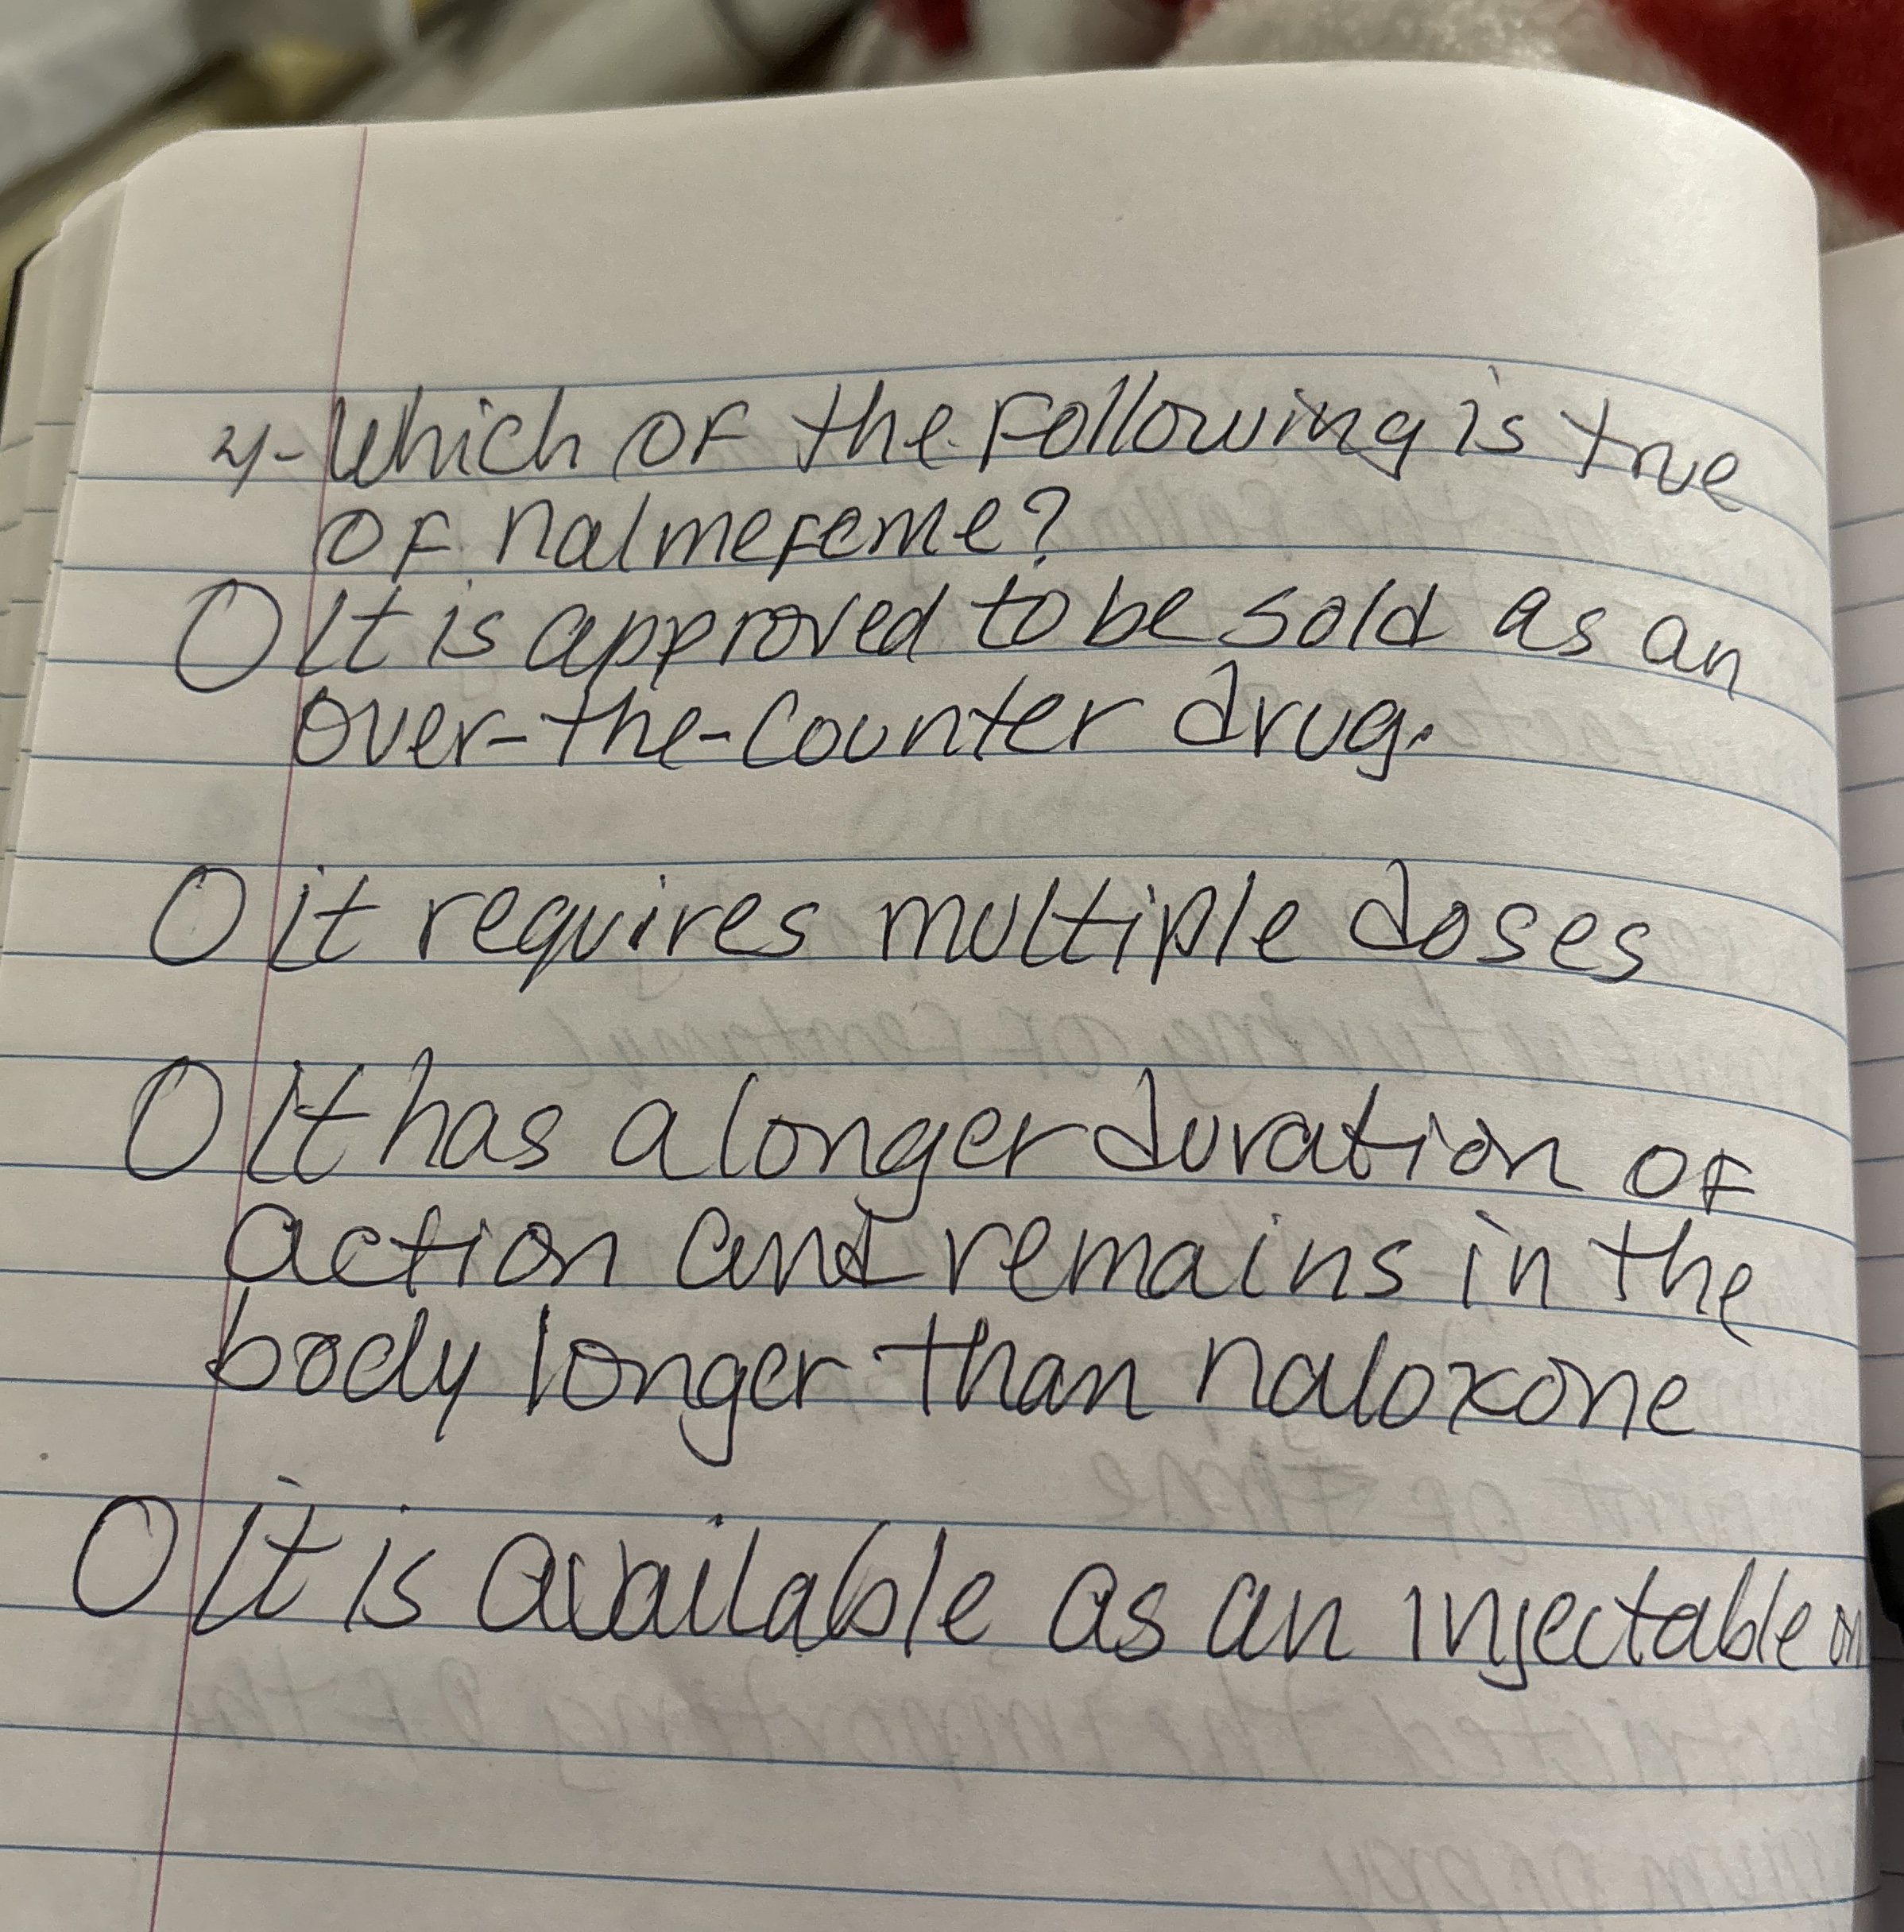 4- Which of the following is true
of nalmefeme?
O It is approved to be sold as an
over-the-counter drug.
O it requires multiple doses
O It has a longer duration of
action and remains in the
body longer than naloxone
O It is available as an injectable